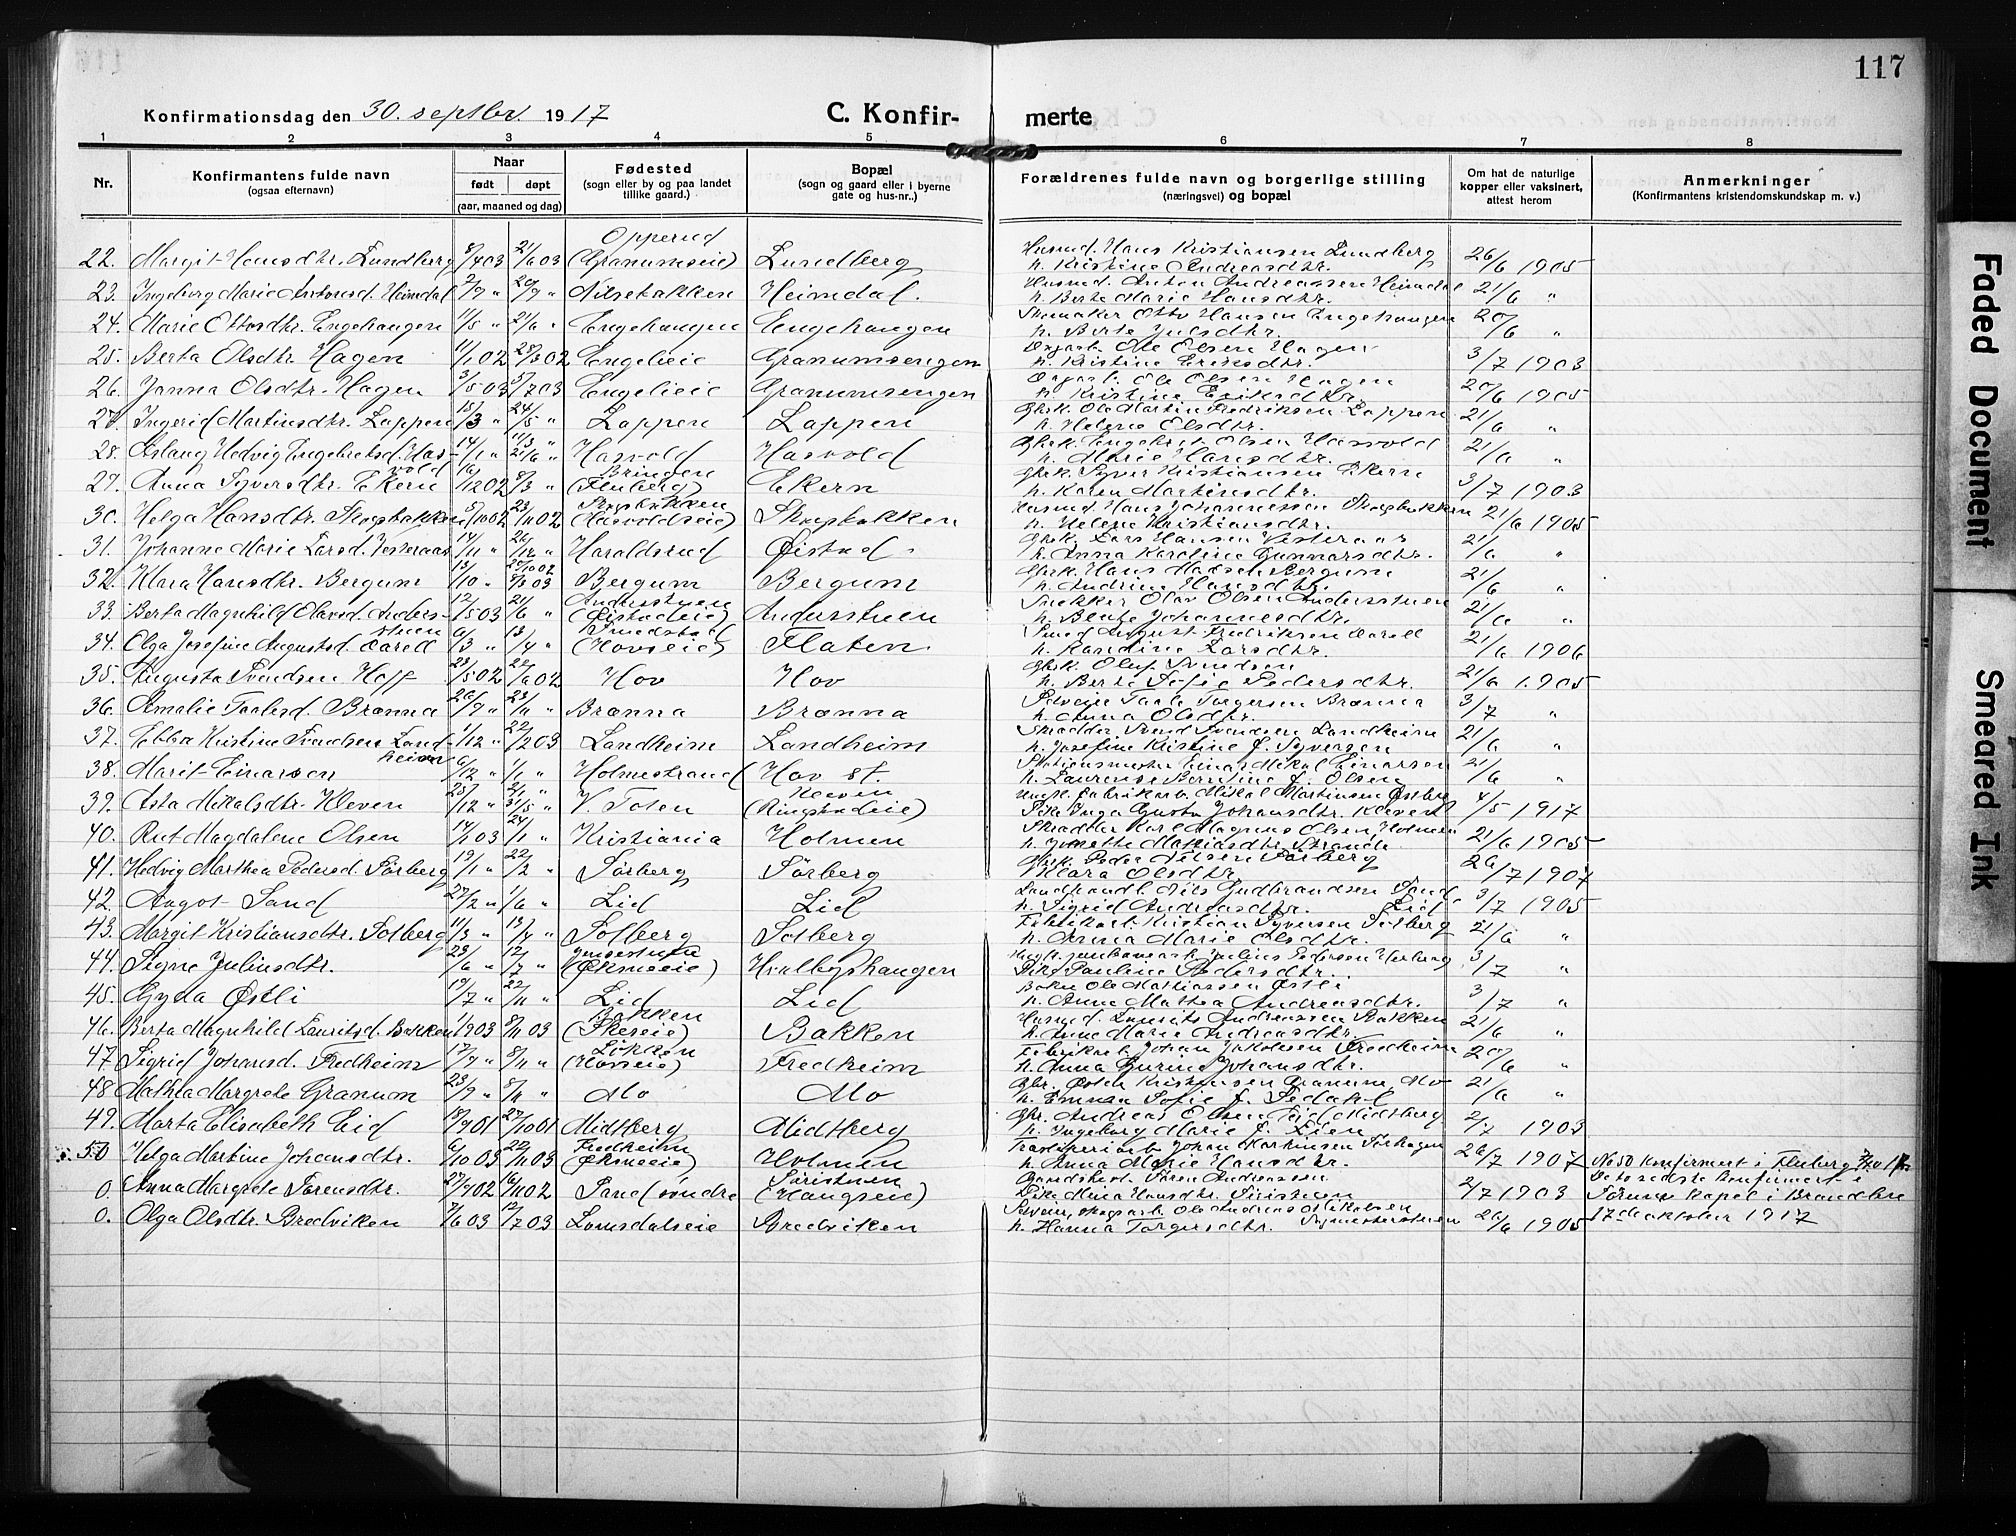 117
Konfirmationsdag den 30. septbr. 1917
C. Konfir- merte
1 2 3 4 5 6 7 8
Nr.
Konfirmantens fulde navn
(ogsaa efternavn)
Naar
født døpt
(aar, maaned og dag)
Fødested
(sogn eller by og paa landet
tillike gaard.)
Bopæl
(sogn og gaard eller i byerne
gate og hus-nr.)
Forældrenes fulde navn og borgerlige stilling
(næringsvei) og bopæl
Om hat de naturlige
kopper eller vaksinert,
attest herom
Anmerkninger
(Konfirmantens kristendomskundskap m. v.)
22. Margit Hansdtr. Lundberg 8/4 03 21/6 03 Opperud (Granumseie) Lundberg Husmd. Hans Kristiansen Lundberg h. Kristine Andreasdtr. 26/6 1905
23. Ingeborg Marie Antonsd. Heimdal Nilsebakken Heimdal. Husmd. Anton Andreassen Heimdal h. Berte Marie Hansdtr. 21/6 "
24. Marie Ottosdtr. Engehaugen 11/5 " 21/6 " Engehaugen Engehaugen Skomaker Otto Hansen Engehaugen h. Berte Julsdtr. 20/6 "
25. Berta Olsdtr. Hagen 11/1 02 Engelieie Granumsengen Ole Olsen Hagen h. Kristine Eriksdtr. 3/7 1903
26. Janna Olsdtr. Hagen 3/5 03 5/7 03 Engelieie Granumsengen Ole Olsen Hagen h. Kristine Eriksdtr. 20/6 1905
27. Ingerid Martinsdtr. Lappen 15/3 " 24/5 " Lappen Lappen Gbsk. Ole Martin Fredriksen Lappen h. Helene Olsdtr. 21/6 "
28. Aslaug Hedvig Engebretsd. Hasvold 14/1 " Hasvold Hasvold Gbsk. Engebret Olsen Hasvold h. Marie Hansdtr. 21/6 "
29. Anna Syversdtr. Ekern 16/12 02 8/3 " Bringen (Fluberg) Ekern Gbsk. Syver Kristiansen Ekern h. Karen Martinsdtr. 3/7 1903
30. Helga Hansdtr. Skogbakken 8/10 02 23/11 02 Skogbakken (Hasvoldseie) Skogbakken Husmd. Hans Johannessen Skogbakken h. Helene Kristiansdtr. 21/6 1905
31. Johanne Marie Larsd. Vesteraas 14/11 " 26/12 " Haraldsrud Øistad. Gbsk. Lars Hansen Vesteraas h. Anna Karoline Gunnarsdtr. 21/6 "
32. Klara Hansdtr. Bergum 13/10 " 8/3 03 Bergum Bergum Gbsk. Hans Madsen Bergum h. Andrine Hansdtr. 21/6 "
33. Berta Magnhild Olavsd. Andersstuen 12/1 03 21/6 " Andersstuen Andersstuen Snekker Olav Olsen Andersstuen h. Johannesdtr. 21/6 "
34. Olga Josefine Augustsd. 6/3 " 13/4 " (Hovseie) Flaten. Smed August Fredriksen h. Karoline Larsdtr. 21/6 1906
35. Augusta Svendsen Hoff 23/5 02 22/6 02 Hov Hov Gbsk. Oluf Svendsen h. Berte Sofie Pedersdtr. 21/6 1905
36. Amalie Taalesd. Brænna 26/9 " 23/11 " Brænna Brænna Selveier Taale Torgersen Brænna h. Anna Olsdtr. 3/7 "
37. Ebba Kristine Svendsen Landheim 1/12 " 22/2 03 Landheim Landheim Skrædder Svend Svendsen Landheim h. Josefine Kristine f. Syversen 21/6 "
38. Marit Einarsen 6/12 " 1/1 " Holmestrand Hov st. Stationsmester Einar Mikal Einarsen h. Laurense Berntine f. Olsen 21/6 "
39. Asta Mikalsdtr. Kleven 25/12 " 31/5 " V. Toten Kleven (Ringstadeie) Ungk. fabrikarb. Mikal Martinsen Østberg Pike Inga Gusta Johansdtr. Kleven 4/5 1917
40. Rut Magdalene Olsen 14/1 03 24/1 " Kristiania Holmen Skrædder Karl Magnus Olsen Holmen h. Mathiasdtr. Strande 21/6 1905
41. Hedvig Marthea Pedersd. Sørberg 19/1 " 22/2 " Sørberg Sørberg Gbsk. Peder Nilsen Sørberg Klara Olsdtr. 26/7 1907
42. Aagot Sand 27/2 " 1/6 " Lid Lid Landhandl. Nils Gudbrandsen Sand h. Sigrid Andreasdtr. Lid 3/7 1905
43. Margit Kristiansdtr. Solberg 11/3 " 13/4 " Solberg Solberg Fabrikarb. Kristian Syversen Solberg h. Anna Marie Olsdtr. 21/6 "
44. Signe Juliusdtr. 23/6 " 12/7 " (Øksneeie) Hvalbyshaugen Julius Pedersen Pike Pauline Pedersdtr. 3/7 "
45. Gyda Østli 19/7 " 22/11 " Lid Lid Baker Ole Mathiassen Østli h. Anne Mathea Andreasdtr. 3/7 "
46. Berta Magnhild Lauritsd. Bakken 1/9 03 8/11 03 Bakken (Skeseie) Bakken Husmd. Laurits Andreassen Bakken h. Anne Marie Andreasdtr. 21/6 "
47. Sigrid Johansd. Fredheim 17/9 " 8/11 " Løkken (Hovseie) Fredheim Fabrikarb. Johan Jakobsen Fredheim h. Anna Gurine Johansdtr. 20/6 "
48. Mathea Margrete Granum 23/9 " 8/11 " Mo Mo Gbr. Kristiansen Granum, Mo h. Emma Sofie f. 21/6 "
49. Marta Elisabeth Eid 18/9 01 27/10 01 Midtberg Midtberg Gbr. Andreas Olsen Eid Midtberg h. Ingeborg Marie f. Lien 2/7 1903
50 Helga Martine Johansdtr. 6/10 03 22/11 03 Fredheim (Øksneeie) Holmen Johan Martinsen h. Anna Marie Hansdtr. 26/7 1907 No 50 konfirmert i Fluberg
0. Anna Margrete Sørensdtr. 27/9 02 16/11 02 Sand søndre Søristuen (Haugseie) Søren Andreassen Pike Mina Hansdtr. Søristuen 2/7 1903 De to sidste konfirmert i
0. Olga Olsdtr. Bredviken 7/6 03 12/7 03 Lomsdalseie Bredviken Ole Andreas Mikalsen h. Hanna Torgersdtr. 26/6 1905 kapel i Brandbu 17de oktober 1917
Faded Document
Smeared Ink